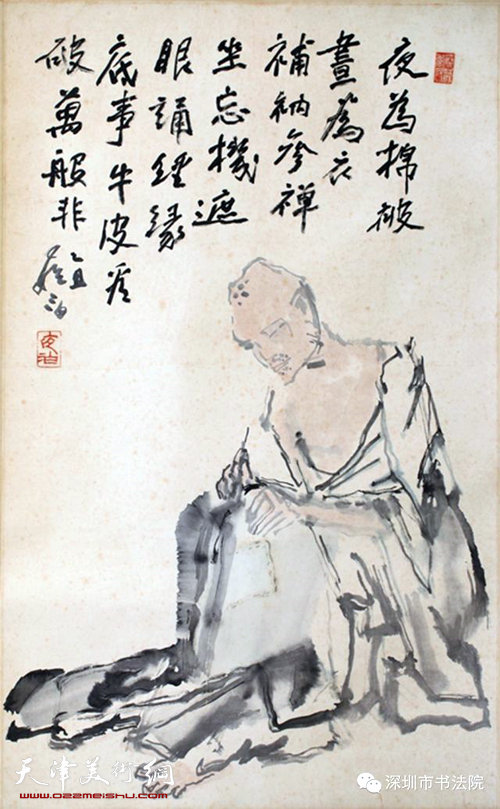 夜為棉被
晝為衣
補衲參禪
坐忘機遮
眼誦經緣
底事牛皮看
破萬般非
乙丑
天津美術網
www.022meishu.com
深圳市书法院